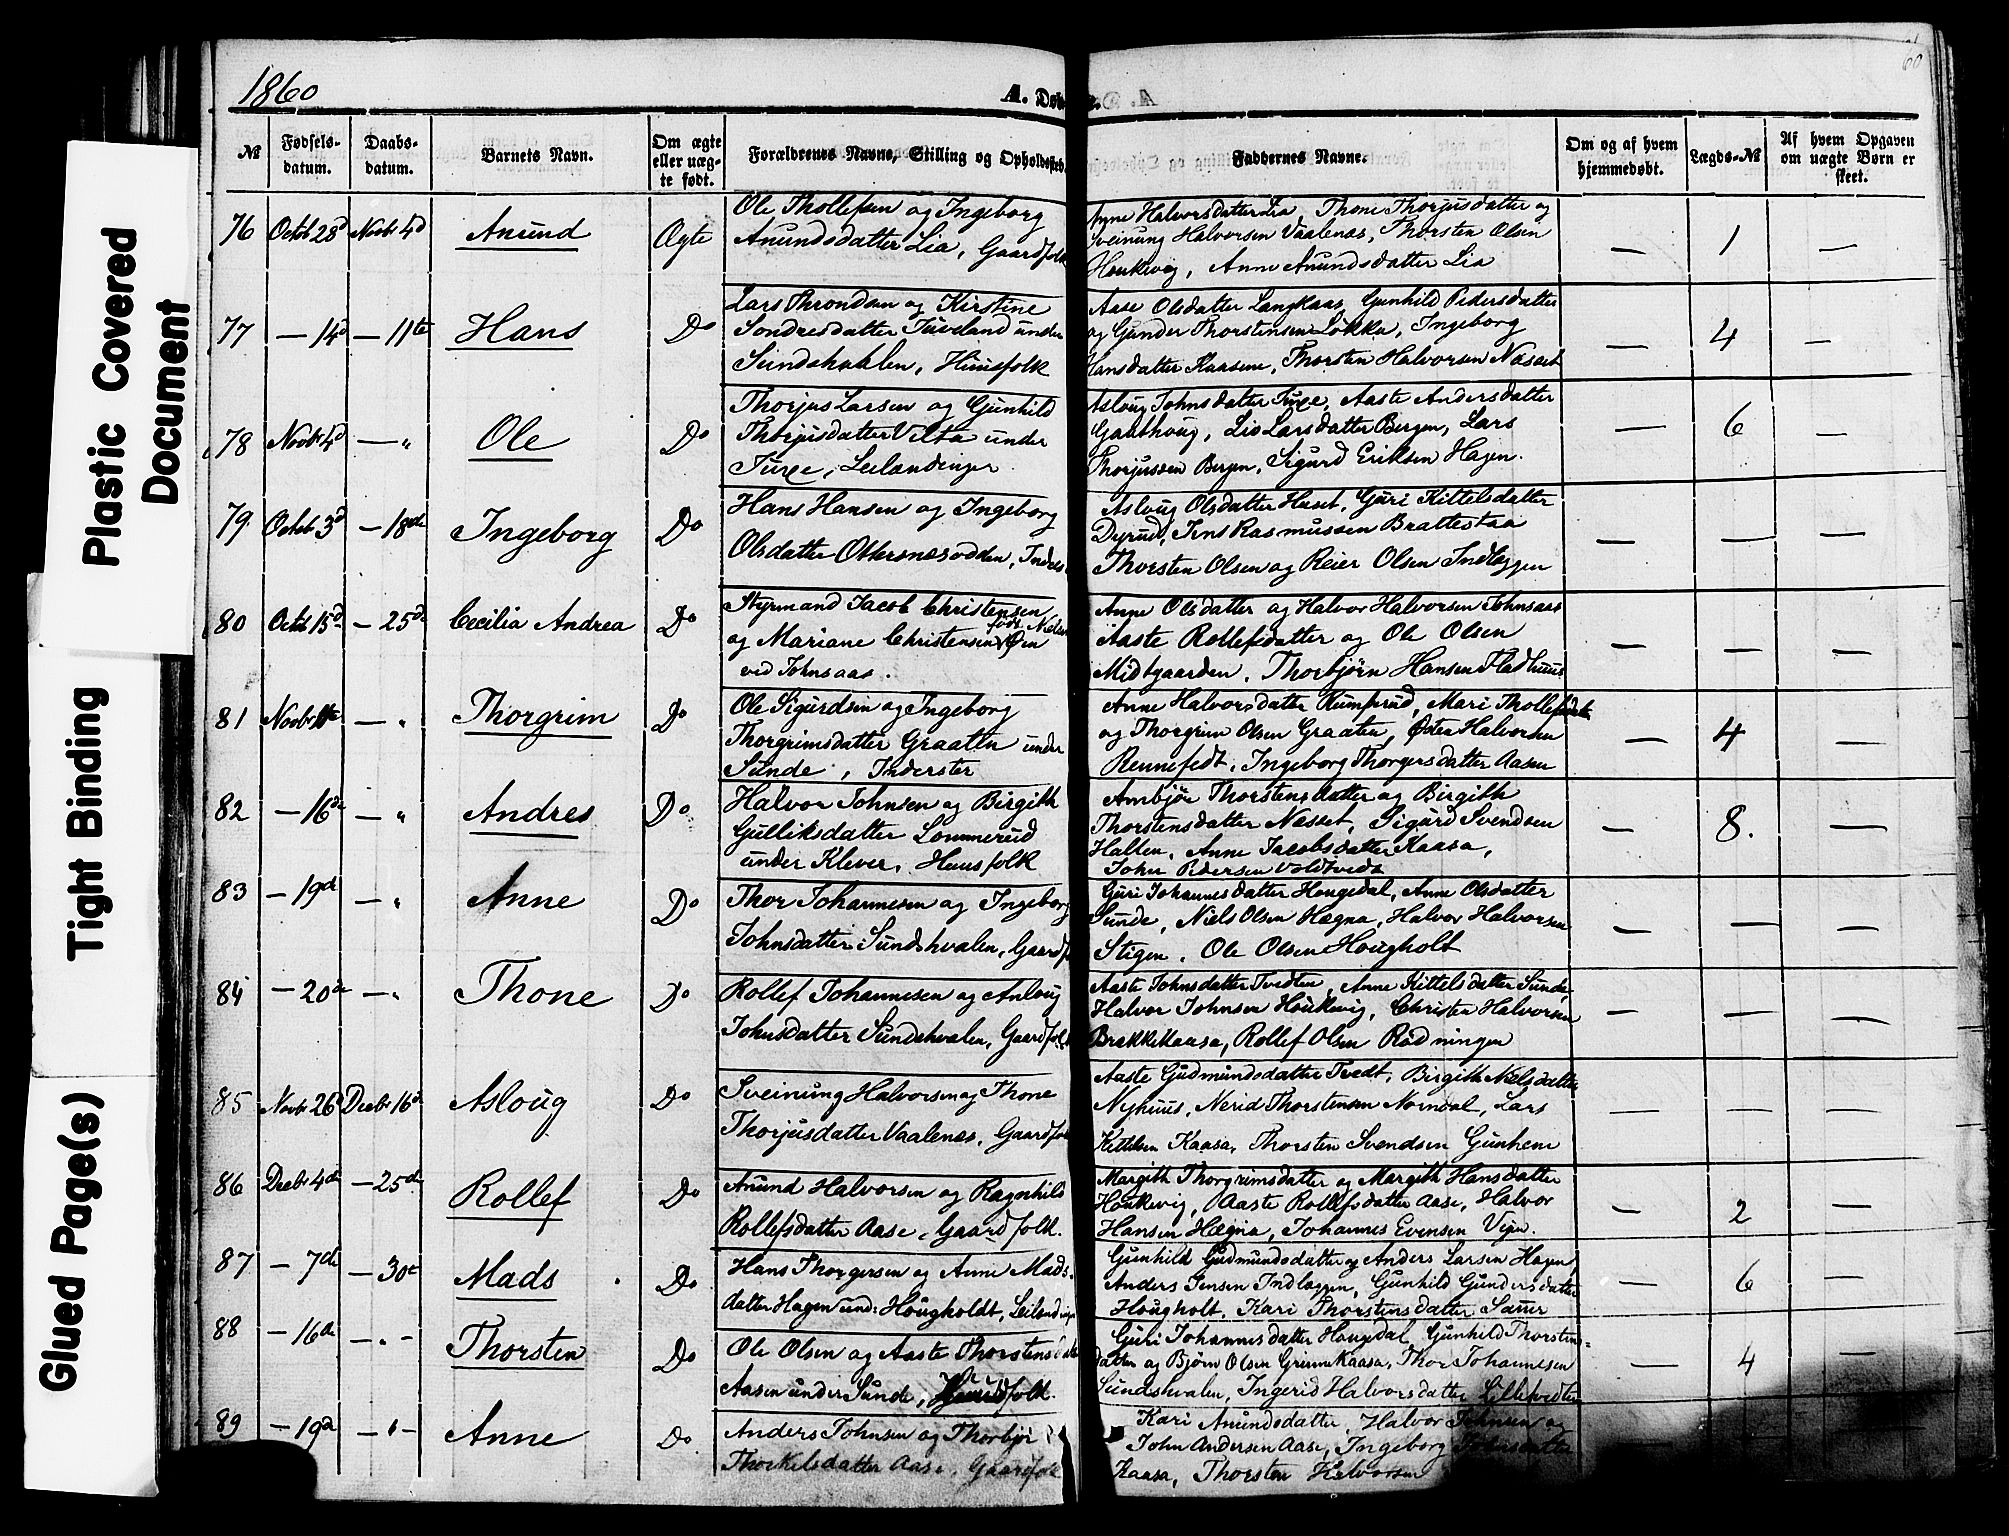 1860
A. Døbte.
60
Plastic Covered
Document
Tight Binding
Glued Page(s)
№
Fødsels-
datum.
Daabs-
datum.
Barnets Navn.
Om ægte
eller uæg-
te født.
Forældrenes Navne, Stilling og Opholdssted.
Faddernes Navne.
Om og af hvem
hjemmedøbt.
Lægds-№
Af hvem Opgaven
om uægte Børn er
skeet.
76 Octob 28d Novb 4d Anund Ægte
Ole Thollefsen og Ingeborg
Anundsdatter Lia, Gaardfolk
Anne Halvorsdatter Lia, Thone Thorjusdatter og
Sveinung Halvorsen Vaalenæs, Thorsten Olsen
Houkevig, Anne Anundsdatter Lia
— 1 —
77 — 14d — 11te Hans Do
Lars Throndsen og Kirstine
Sondresdatter Juveland under
Sundshvalen, Huusfolk
Aase Olsdatter Langkaas, Gunhild Pedersdatter
og Gunder Thorstensen Løkka, Ingeborg
Hansdatter Kaasene, Thorsten Halvorsen Næsset
— 4 —
78 Novb 4d — „ Ole Do
Thorjus Larsen og Gunhild
Thorjusdatter Vilta under
Juxe, Leilændinger
Asloug Johnsdatter Juxe, Aaste Andersdatter
Gaathoug, Liv Larsdatter Bergen, Lars
Thorjussen Bergen, Sigurd Eriksen Hagen.
— 6 —
79 Octob 3d — 18de Ingeborg Do
Hans Hansen og Ingeborg
Olsdatter Ottersnæsodden, Inders
Asloug Olsdatter Huset, Guri Kittelsdatter
Dyrud, Jens Rasmussen Brattestaa
Thorsten Olsen og Reier Olsen Indlæggen
— — —
80 Octob 15d — 25de Cecilia Andrea Do
Styrmand Jacob Christensen
og Mariane Christensen født Nielsen Øen
ved Johnsaas.
Anne Olsdatter og Halvor Halvorsen Johnsaas
Aaste Rollefsdatter og Ole Olsen
Midtgaarden, Thorbjørn Hansen Fladhuus
— — —
81 Novb 11te — „ Thorgrim Do
Ole Sigurdsen og Ingeborg
Thorgrimsdatter Graaten under
Sunde, Inderster
Anne Halvorsdatter Rumprud, Mari Thollefsdatt
og Thorgrim Olsen Graaten, Østen Halvorsen
Rennefedt, Ingeborg Thorgersdatter Aasen
— 4 —
82 — 16de — „ Andres Do
Halvor Johnsen og Birgith
Gulliksdatter Lommerud
under Klever, Huusfolk
Ambjør Thorstensdatter og Birgith
Thorstensdatter Næsset, Sigurd Svendsen
Halten, Anne Jacobsdatter Kaasa,
John Pedersen Voldtveds
— 8. —
83 — 19de — „ Anne Do
Thor Johannesen og Ingeborg
Johnsdatter Sundshvalen, Gaardf
Guri Johannesdatter Hougedal, Anne Olsdatter
Sunde, Niels Olsen Hægna, Halvor Halvorsen
Stigen, Ole Olsen Hougholt
— — —
84 — 20de — „ Thone Do
Rollef Johannesen og Anloug
Johnsdatter Sundshvalen, Gaardfolk
Aaste Johnsdatter Tvedten, Anne Kittelsdatter Sunde,
Halvor Johnsen Houkevig, Christen Halvorsen
Brekkekaasa, Rollef Olsen Rødningen
— — —
85 Novb 26d Decbr 16d Asloug Do
Sveinung Halvorsen og Thone
Thorjusdatter Vaalenæs, Gaardfol
Aaste Gudmundsdatter Tvedt, Birgith Nielsdatter
Nyhuus, Nerid Thorstensen Norndal, Lars
Kittelsen Kaasa, Thorsten Svendsen Gunheim
— — —
86 Decbr 4de — 25de Rollef Do
Anund Halvorsen og Ragnhild
Rollefsdatter Aase, Gaardfolk.
Margith Thorgrimsdatter og Margith Hansdatter
Houkevig, Aaste Rollefsdatter Aase, Halvor
Hansen Hægna, Johannes Evensen Vipe.
— 2 —
87 — 7de — 30te Mads Do
Hans Thorgersen og Anne Mads-
datter Hagen und: Hougholdt, Leilændinger
Gunhild Gudmundsdatter og Anders Larsen Hagen
Anders Jensen Indlæggen, Gunhild Gundersdatter
Hougholt, Kari Thorstensdatter Saaer
— 6 —
88 — 16de — „ — Thorsten Do
Ole Olsen og Aaste Thorstensdatter
Aasen under Sunde, Huusfolk.
Guri Johannesdatter Hougdal, Gunhild Thorstens-
datter og Bjørn Olsen Grimekaasa, Thor Johannesen
Sundshvalen, Ingerid Halvorsdatter Lilletvedten
— 4 —
89 — 19de — „ — Anne Do
Anders Johnsen og Thorbjør
Thorkelsdatter Aase, Gaardfolk
Kari Anundsdatter, Halvor Johnsen og
John Andersen Aase, Ingeborg Johnsdatter
Kaasa, Thorsten Halvorsen